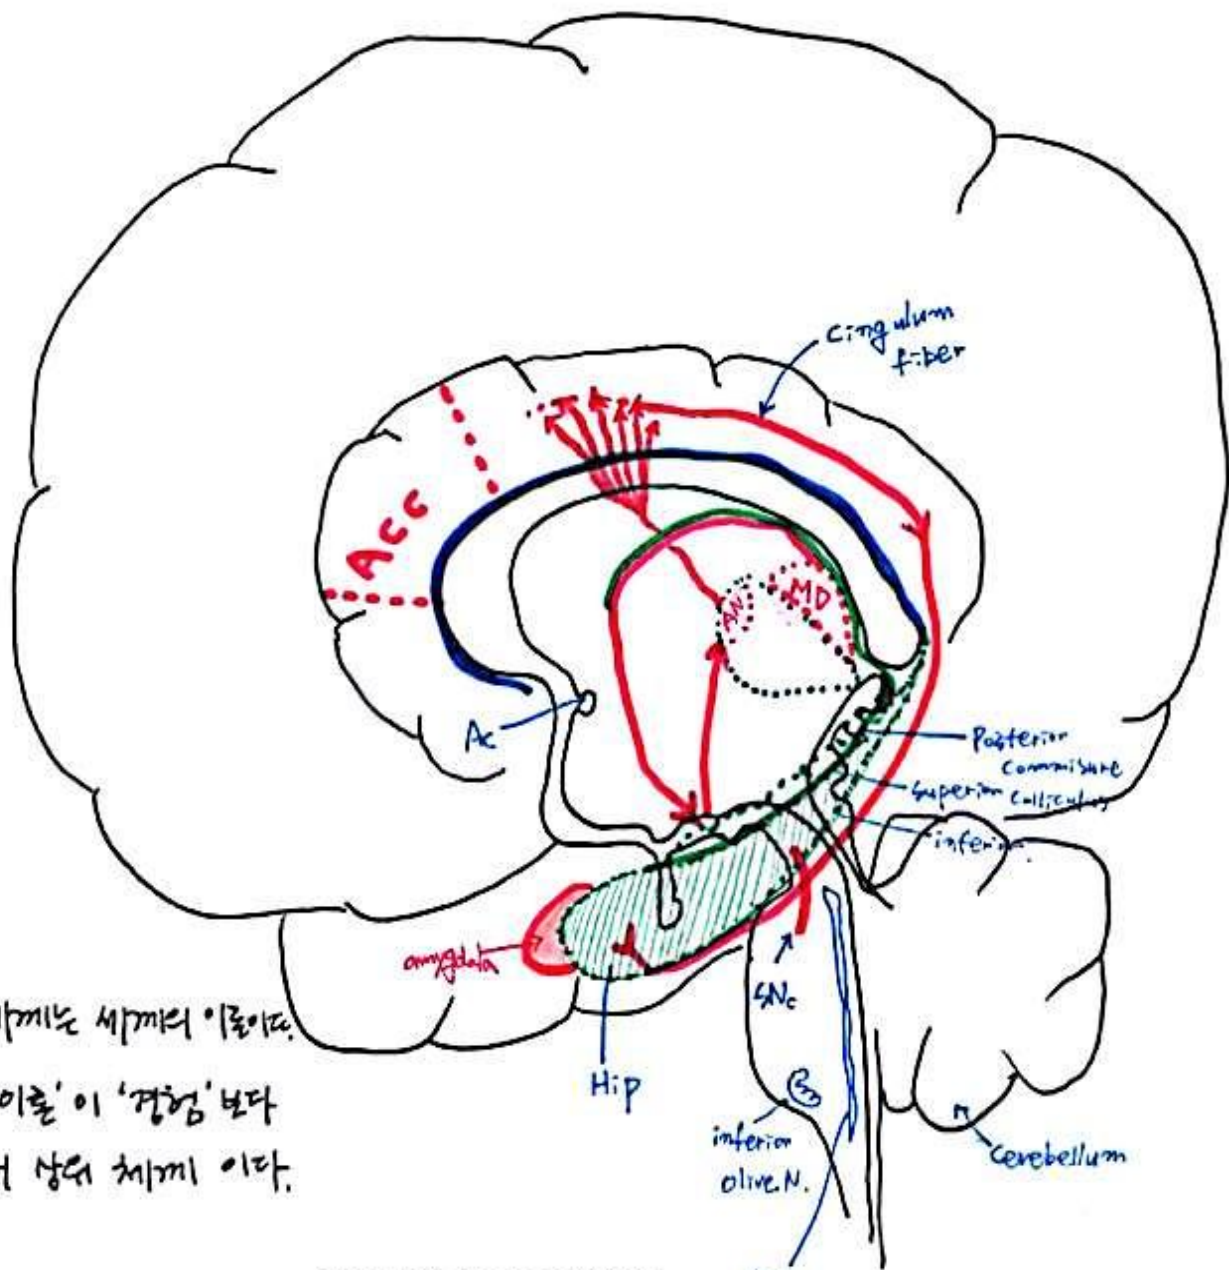 cingulum
fiber
Acc
MD
AN
Ac
Posterior
commisure
superior colliculus
inferior.
amygdala
SNc
Hip
inferior
olive.N.
cerebellum
세계의 이론이다.
이론'이 '경험'보다
상위 체계 이다.